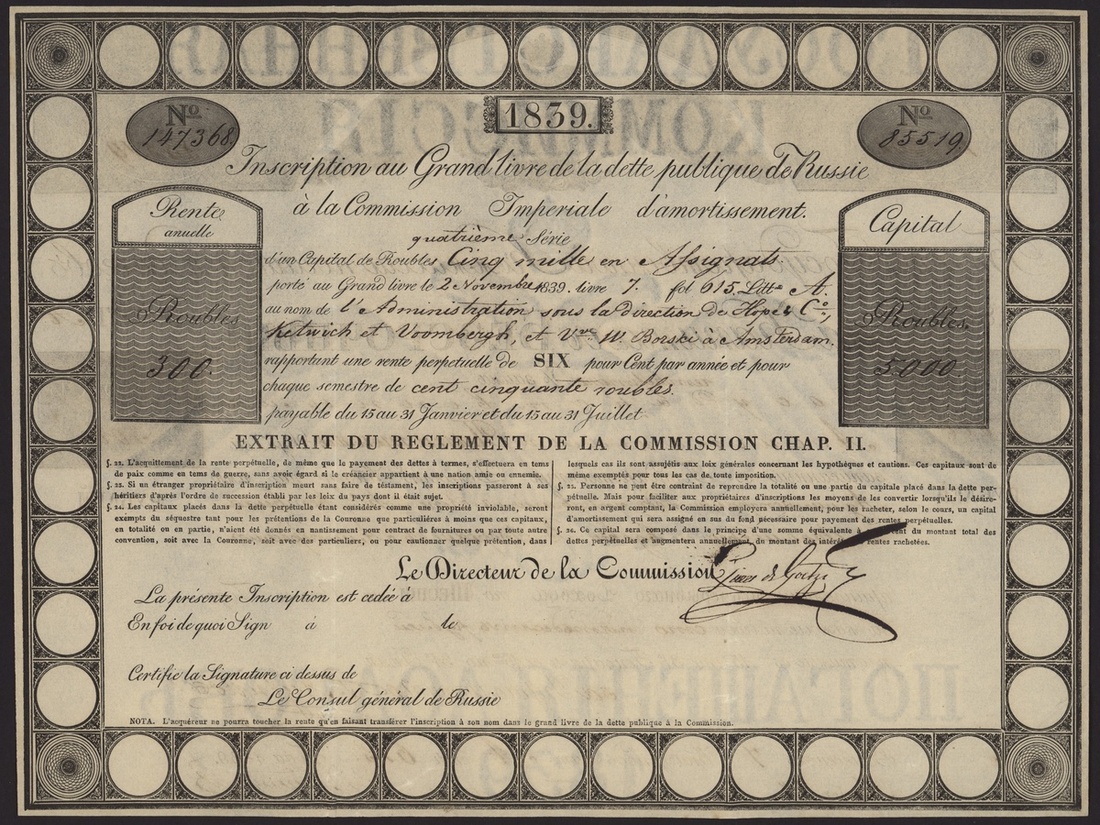 No
147368.
1839.
No
85519.
Inscription au Grand livre de la dette publique de Russie
à la Commission Imperiale d'amortissement.
Rente
anuelle
Roubles
300.
Capital
Roubles.
5000
quatrième Série
d'un Capital de Roubles Cinq mille en Assignats.
porté au Grand livre le 2 Novembre 1839. livre 7. fol 615. Litt. A.
au nom de l'Administration sous la direction de Hope & Co.,
Ketwich et Voombergh, et Vve W. Borski à Amsterdam.
rapportant une rente perpetuelle de SIX pour Cent par année et pour
chaque semestre de cent cinquante roubles.
payable du 15 au 31 Janvier et du 15 au 31 Juillet
EXTRAIT DU REGLEMENT DE LA COMMISSION CHAP. II.
§. 22. L'acquittement de la rente perpétuelle, de même que le payement des dettes à termes, s'effectuera en tems
de paix comme en tems de guerre, sans avoir égard si le créancier appartient à une nation amie ou ennemie.
§. 23. Si un étranger propriétaire d'inscription meurt sans faire de téstament, les inscriptions passeront à ses
héritiers d'après l'ordre de succession établi par les loix du pays dont il était sujet.
§. 24. Les capitaux placés dans la dette perpétuelle étant considérés comme une propriété inviolable, seront
exempts du séquestre tant pour les prétentions de la Couronne que particulières à moins que ces capitaux,
en totalité ou en partie, n'aient été donnés en nantissement pour contract de fournitures ou par toute autre
convention, soit avec la Couronne, soit avec des particuliers, ou pour cautionner quelque prétention, dans
lesquels cas ils sont assujétis aux loix générales concernant les hypothèques et cautions. Ces capitaux sont de
même exemptés pour tous les cas de toute imposition.
§. 25. Personne ne peut être contraint de reprendre la totalité ou une partie du capital placé dans la dette per-
pétuelle. Mais pour faciliter aux propriétaires d'inscriptions les moyens de les convertir lorsqu'ils le désire-
ront, en argent comptant, la Commission employera annuellement, pour les racheter, selon le cours, un capital
d'amortissement qui sera assigné en sus du fond nécessaire pour payement des rentes perpétuelles.
§. 26. Ce capital sera composé dans le principe d'une somme équivalente à cent du montant total des
dettes perpétuelles et augmentera annuellement, du montant des intérêts rentes rachetées.
Le Directeur de la Commission
La présente Inscription est cedée à
En foi de quoi Sign à le
Certifie la Signature ci dessus de
Le Consul général de Russie
NOTA. L'acquéreur ne pourra toucher la rente qu'en faisant transférer l'inscription à son nom dans le grand livre de la dette publique à la Commission.